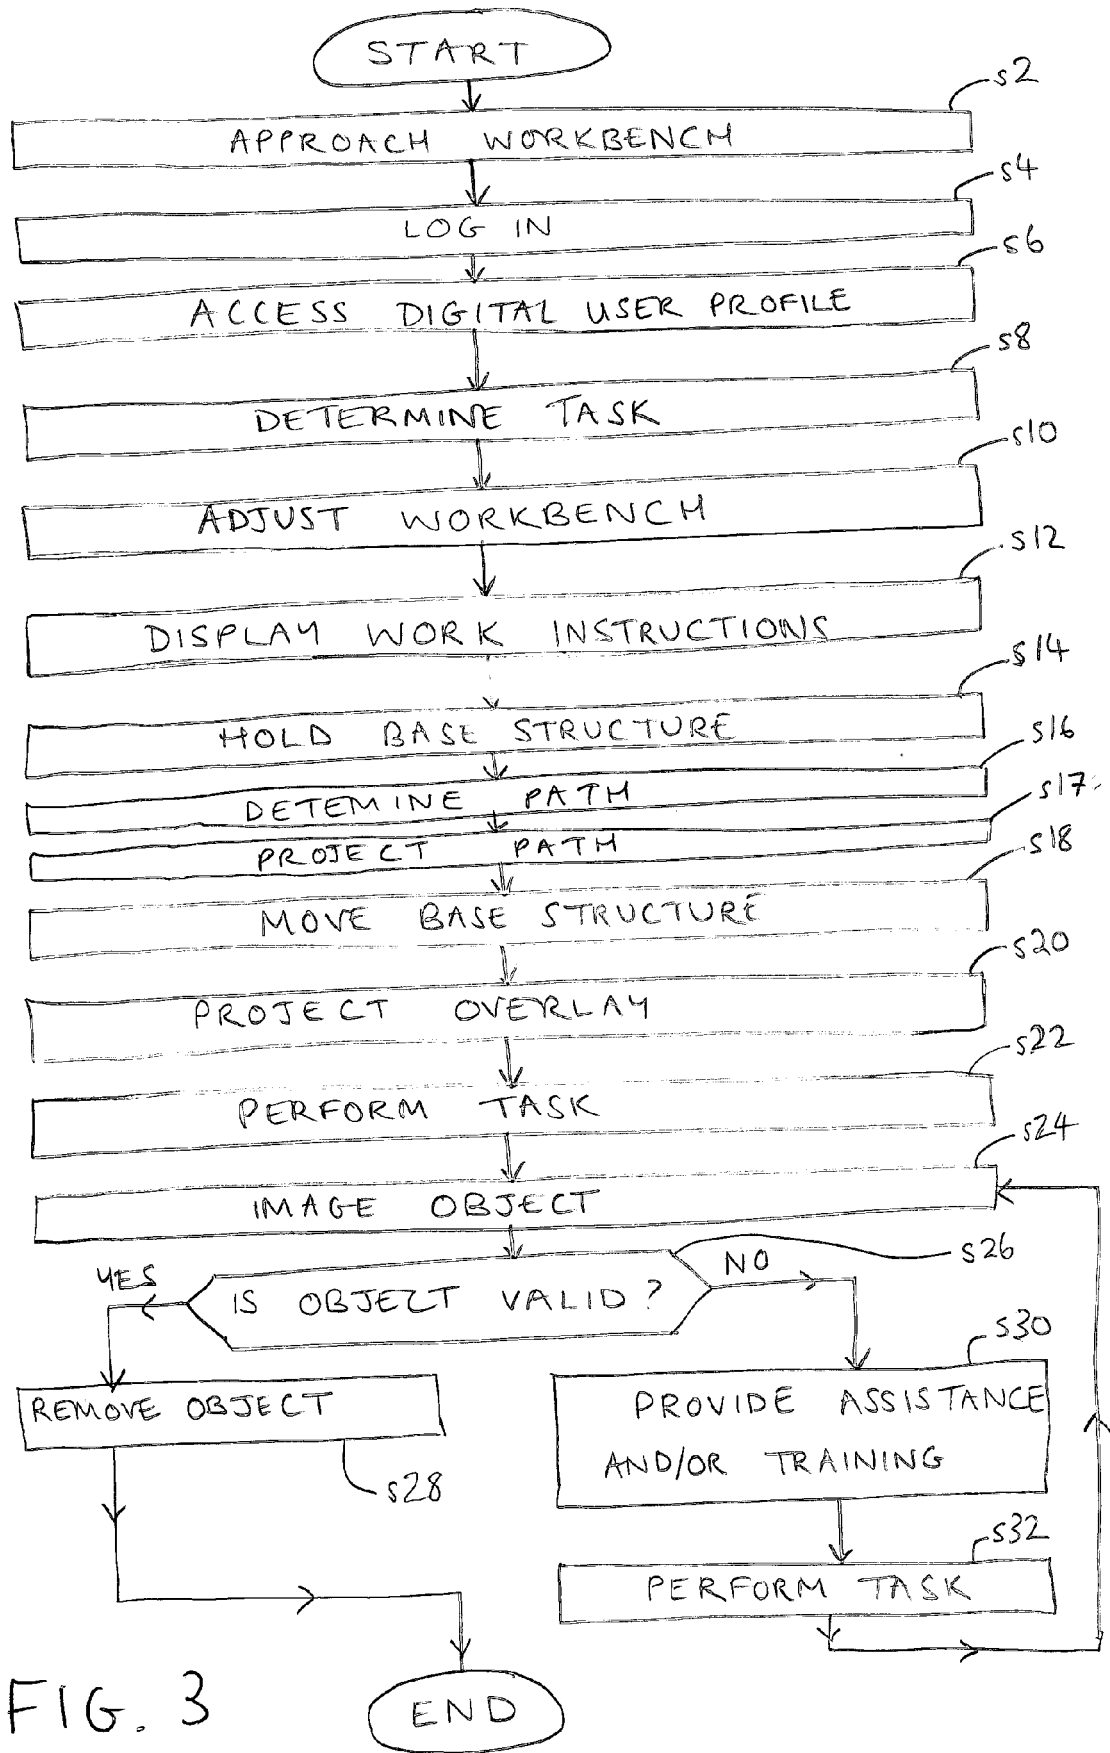 START
s2
APPROACH WORKBENCH
s4
LOG IN
s6
ACCESS DIGITAL USER PROFILE
s8
DETERMINE TASK
s10
ADJUST WORKBENCH
s12
DISPLAY WORK INSTRUCTIONS
s14
HOLD BASE STRUCTURE
s16
DETEMINE PATH
s17
PROJECT PATH
s18
MOVE BASE STRUCTURE
s20
PROJECT OVERLAY
s22
PERFORM TASK
s24
IMAGE OBJECT
s26
YES
NO
IS OBJECT VALID?
s30
REMOVE OBJECT
s28
PROVIDE ASSISTANCE
AND/OR TRAINING
s32
PERFORM TASK
END
FIG. 3